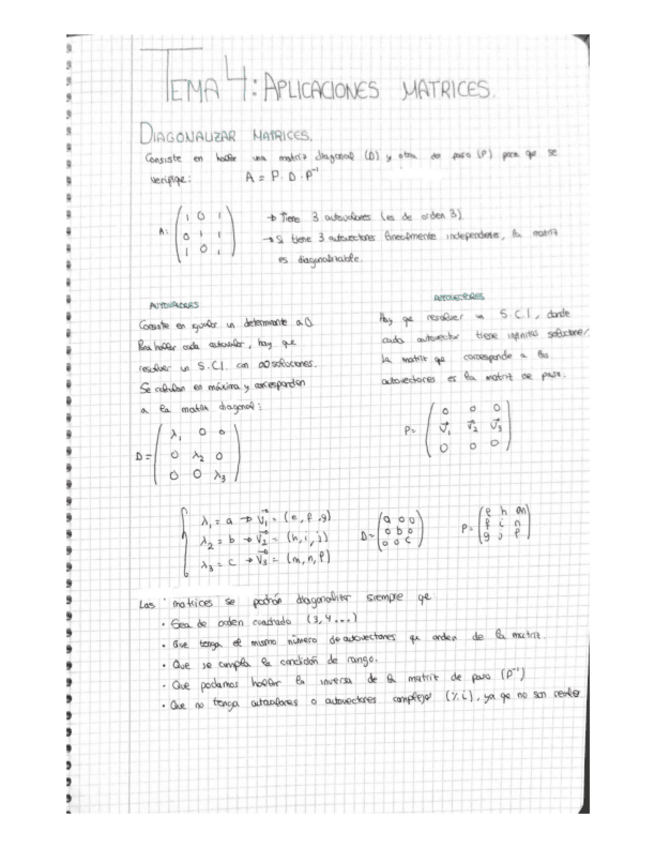 TEMA 4: APLICACIONES MATRICES.
DIAGONALIZAR MATRICES.
Consiste en hallar una matriz diagonal (D) y otra de paso (P) para que se
verifique: A = P · D · P⁻¹
A: ( 1 0 1
0 1 1
1 0 1 )
→ Tiene 3 autovalores (es de orden 3)
→ Si tiene 3 autovectores linealmente independientes, la matriz
es diagonalizable.
AUTOVALORES
Consiste en igualar un determinante a 0.
Para hallar cada autovalor, hay que
resolver un S.C.I. con ∞ soluciones.
Se calculan en máxima y corresponden
a la matriz diagonal:
D = ( λ₁ 0 0
0 λ₂ 0
0 0 λ₃ )
AUTOVECTORES
Hay que resolver un S.C.I., donde
cada autovector tiene infinitas soluciones.
La matriz que corresponde a los
autovectores es la matriz de paso.
P = ( 0 0 0
V₁ V₂ V₃
0 0 0 )
λ₁ = a → V₁ = (e, f, g)
λ₂ = b → V₂ = (h, i, j)
λ₃ = c → V₃ = (m, n, p)
D = ( a 0 0
0 b 0
0 0 c )
P = ( e h m
f i n
g j p )
Las matrices se podrán diagonalizar siempre que
· Sea de orden cuadrado (3, 4...)
· Que tenga el mismo número de autovectores que orden de la matriz.
· Que se cumpla la condición de rango.
· Que podamos hallar la inversa de la matriz de paso (P⁻¹)
· Que no tenga autovalores o autovectores complejos (%i), ya qe no son reales